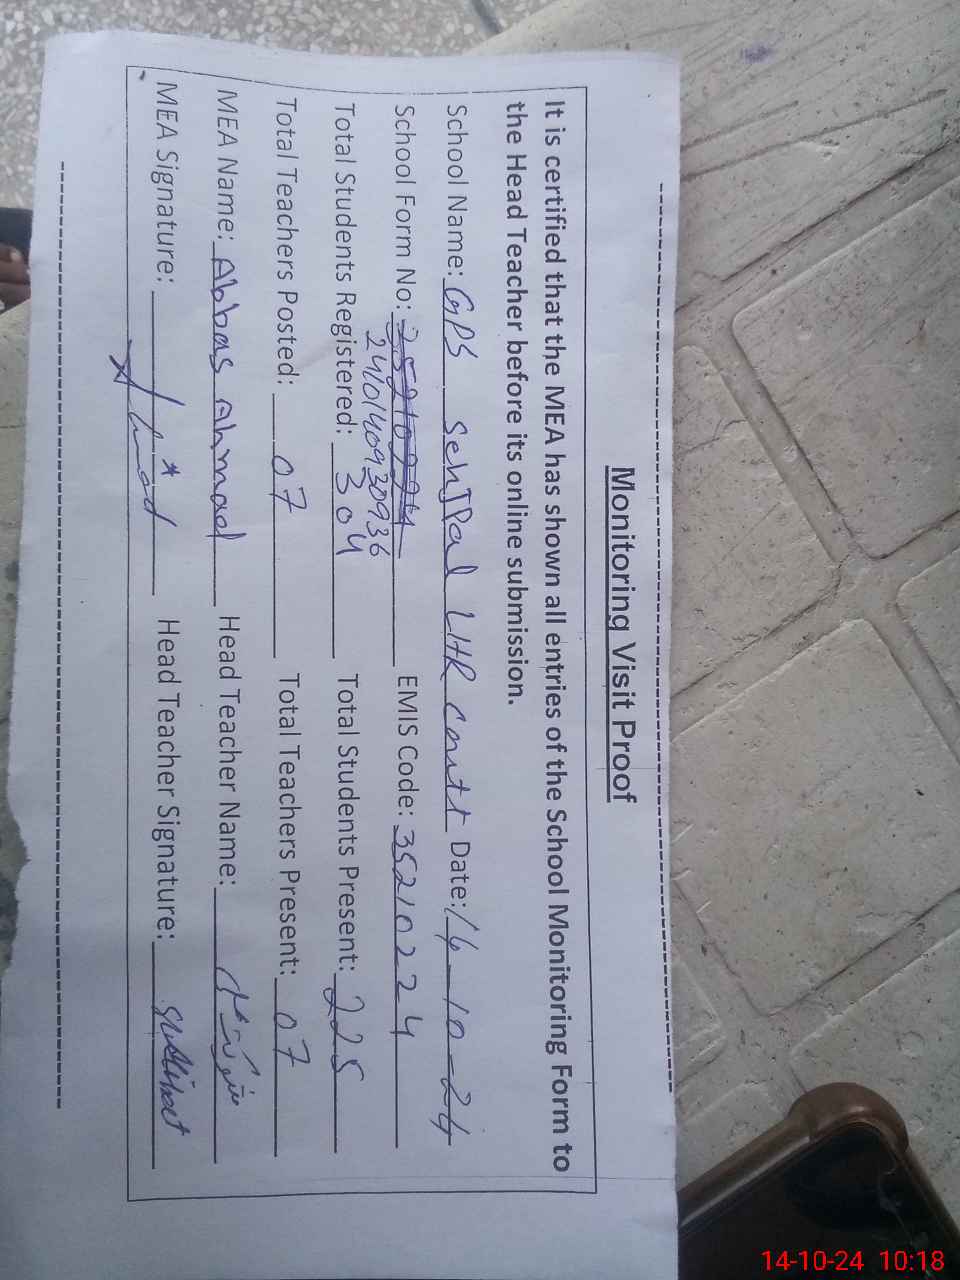 Monitoring Visit Proof
It is certified that the MEA has shown all entries of the School Monitoring Form to
the Head Teacher before its online submission.
School Name: GPS Sehjpal LHR Cantt Date: 14-10-24
School Form No: 35210224 EMIS Code: 35210224
2410140930936
Total Students Registered: 304 Total Students Present: 225
Total Teachers Posted: 07 Total Teachers Present: 07
MEA Name: Abbas Ahmad Head Teacher Name:
MEA Signature: Ahmad Head Teacher Signature:
14-10-24 10:18